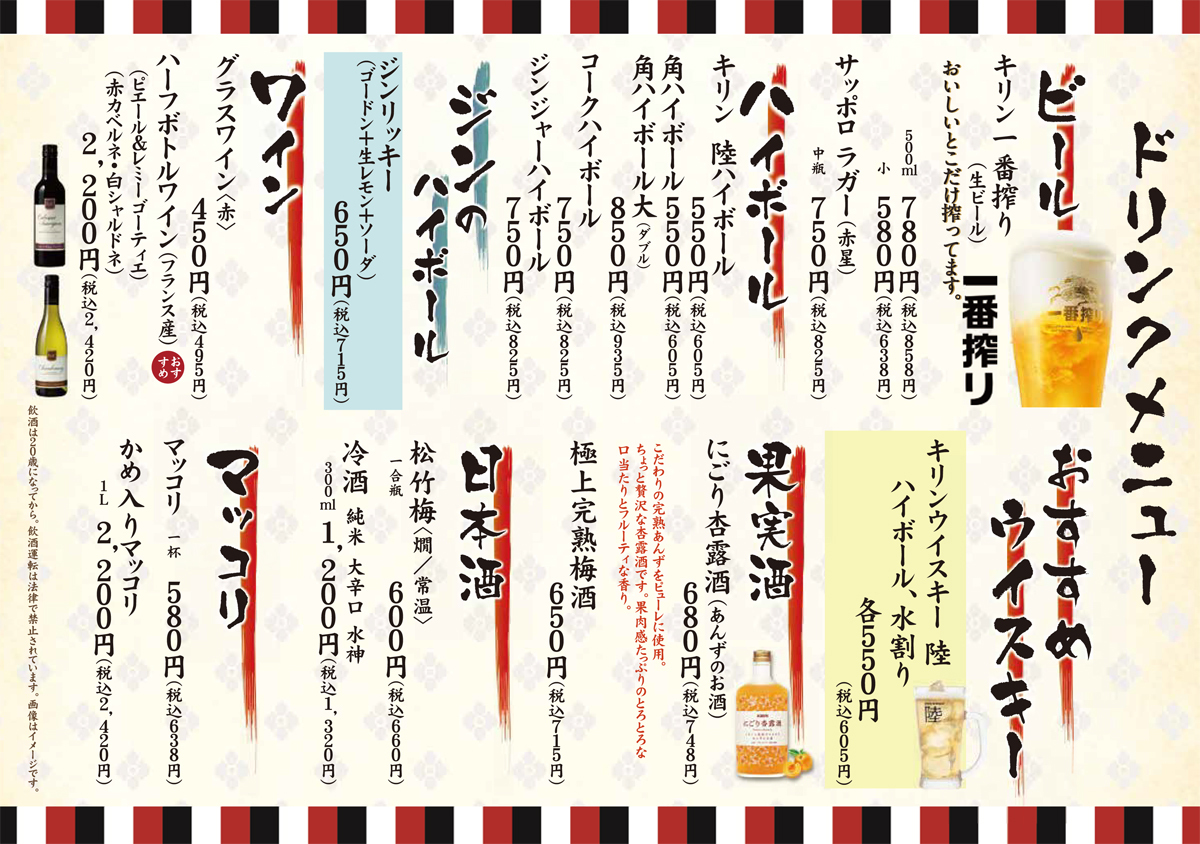 ドリンクメニュー
ビール
キリン一番搾り
（生ビール）
おいしいとこだけ搾ってます。
一番搾り
一番搾り
500ml 780円（税込858円）
小 580円（税込638円）
サッポロ ラガー（赤星）
中瓶 750円（税込825円）
ハイボール
キリン 陸ハイボール
550円（税込605円）
角ハイボール 550円（税込605円）
角ハイボール大（ダブル）
850円（税込935円）
コークハイボール
750円（税込825円）
ジンジャーハイボール
750円（税込825円）
ジンの
ハイボール
ジンリッキー
（ゴードン＋生レモン＋ソーダ）
650円（税込715円）
ワイン
グラスワイン〈赤〉
450円（税込495円）
ハーフボトルワイン（フランス産）
おすすめ
（ピエール&レミーゴーティエ）
（赤カベルネ・白シャルドネ）
2,200円（税込2,420円）
おすすめ
ウイスキー
キリンウイスキー 陸
ハイボール、水割り
各550円
（税込605円）
陸
果実酒
にごり杏露酒（あんずのお酒）
680円（税込748円）
こだわりの完熟あんずをピューレに使用。
ちょっと贅沢な杏露酒です。果肉感たっぷりのとろとろな
口当たりとフルーティな香り。
にごり杏露酒
極上完熟梅酒
650円（税込715円）
日本酒
松竹梅〈燗／常温〉
一合瓶 600円（税込660円）
冷酒 純米 大辛口 水神
300ml 1,200円（税込1,320円）
マッコリ
マッコリ 一杯 580円（税込638円）
かめ入りマッコリ
1L 2,200円（税込2,420円）
飲酒は20歳になってから。飲酒運転は法律で禁止されています。画像はイメージです。